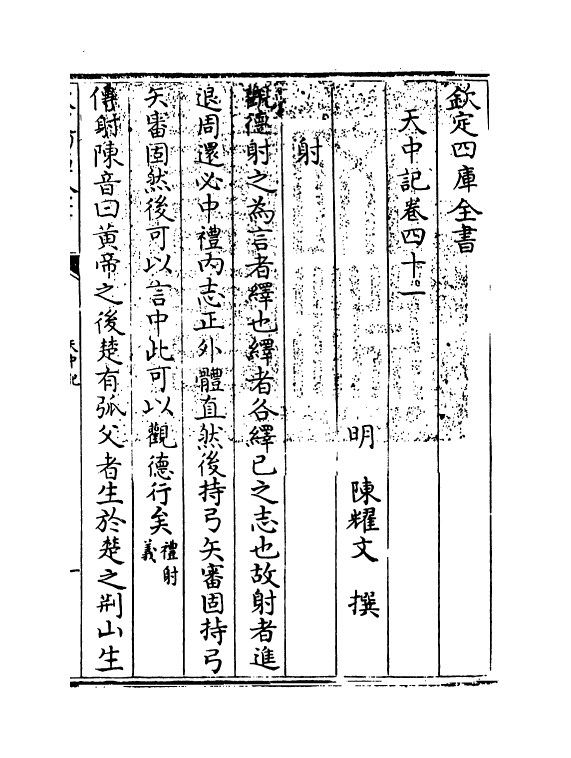 欽定四庫全書
天中記卷四十一
明 陳耀文 撰
射
觀德射之為言者繹也繹者各繹已之志也故射者進
退周還必中禮内志正外體直然後持弓矢審固持弓
矢審固然後可以言中此可以觀德行矣禮射
義
傳射陳音曰黄帝之後楚有弧父者生於楚之荆山生
天中記
一